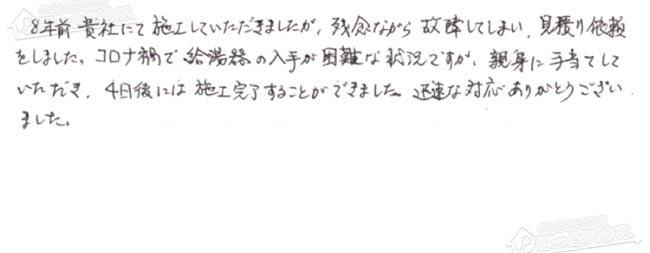 8年前貴社にて施工していただきましたが、残念ながら故障してしまい、見積り依頼
をしました。コロナ禍で給湯器の入手が困難な状況ですが、親身に手当てして
いただき、4日後には施工完了することができました。迅速な対応ありがとうござい
ました。